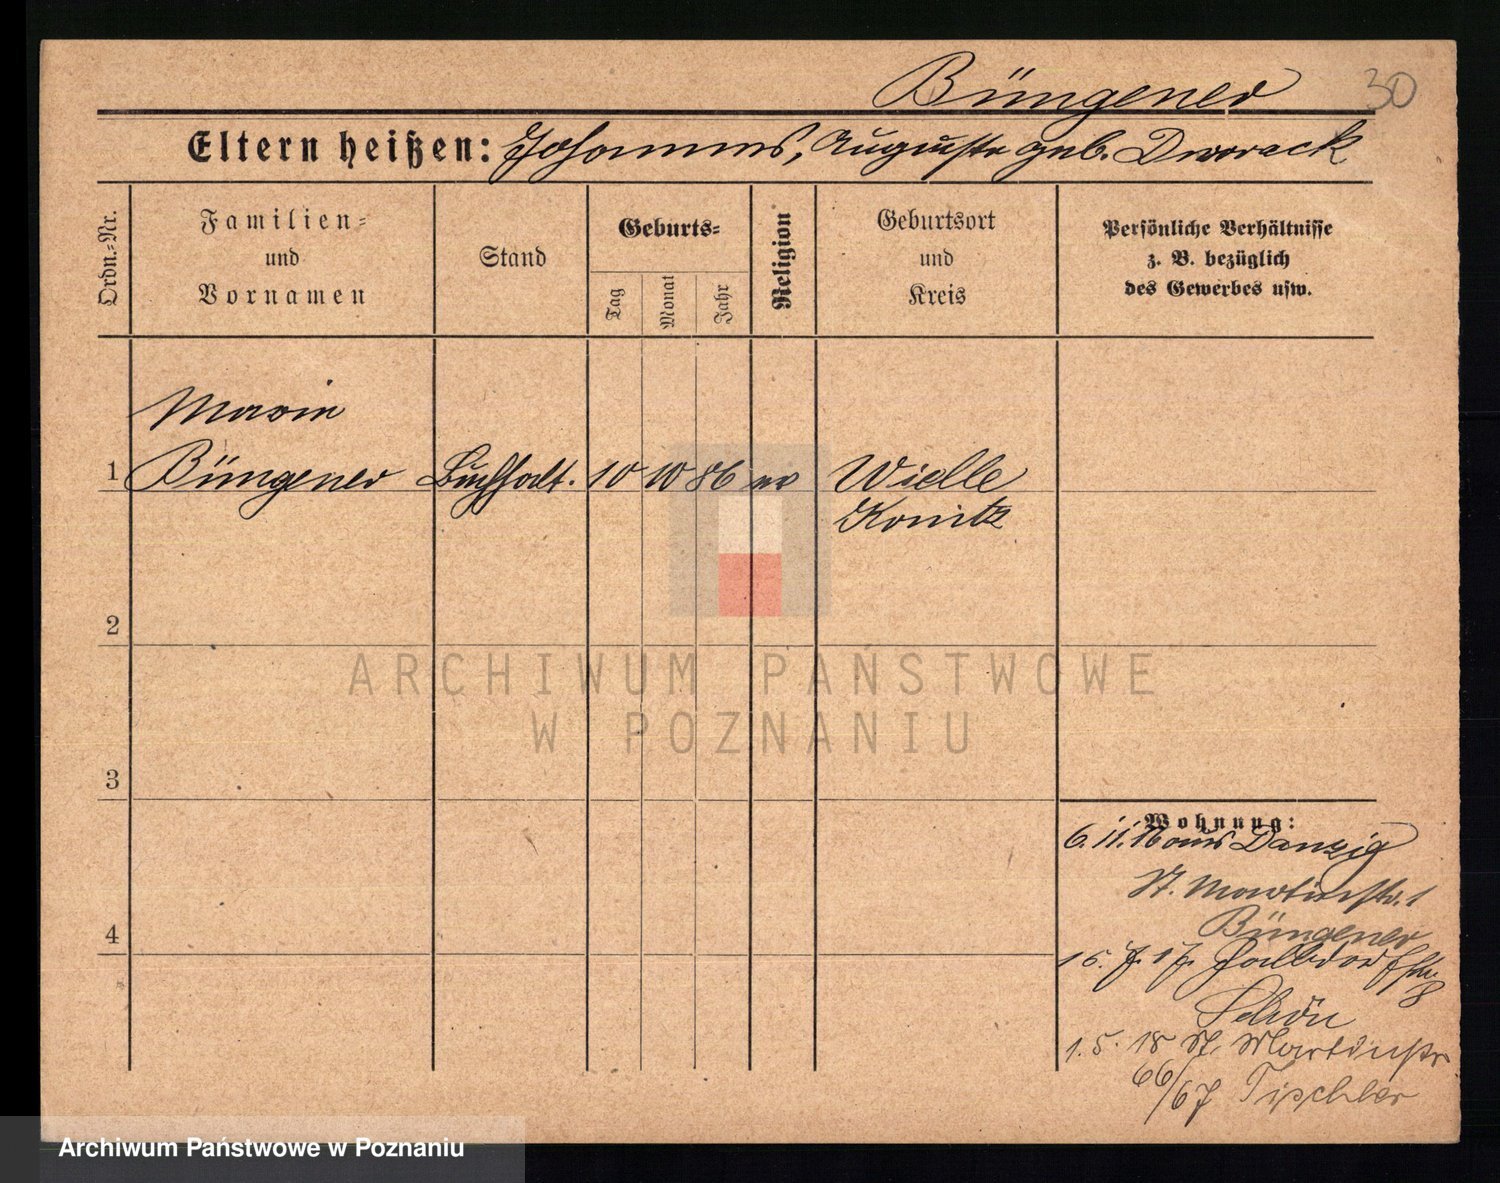 Büngener 30
Eltern heißen: Johannes, Auguste geb. Dworack
Ordn.-Nr.
Familien-
und
Vornamen
Stand
Geburts-
Tag
Monat
Jahr
Religion
Geburtsort
und
Kreis
Persönliche Verhältnisse
z. B. bezüglich
des Gewerbes usw.
Marie
1 Büngener Buchhalt. 10 10 86 ev Wielle
Konitz
2
3
4
Wohnung:
6.11.16 aus Danzig
St. Martinstr. 1
Büngener
15. 7. 17
8
Schön
1. 5. 18 St. Martinstr
66/67 Tischler
ARCHIWUM PAŃSTWOWE
W POZNANIU
Archiwum Państwowe w Poznaniu